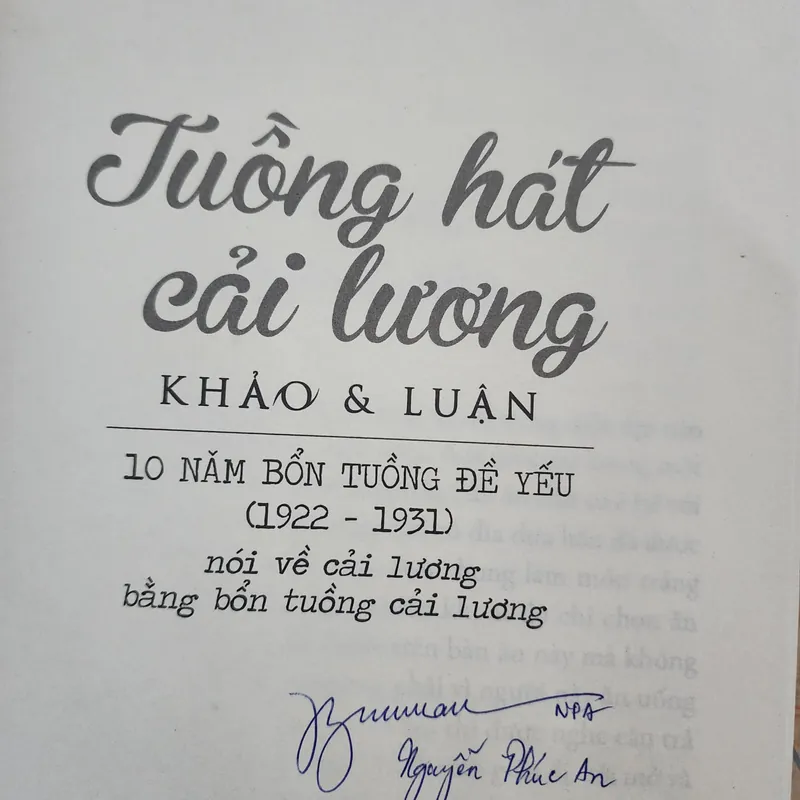 Tuồng hát
cải lương
KHẢO & LUẬN
10 NĂM BỔN TUỒNG ĐỀ YẾU
(1922 - 1931)
nói về cải lương
bằng bổn tuồng cải lương
NPA
Nguyễn Phúc An